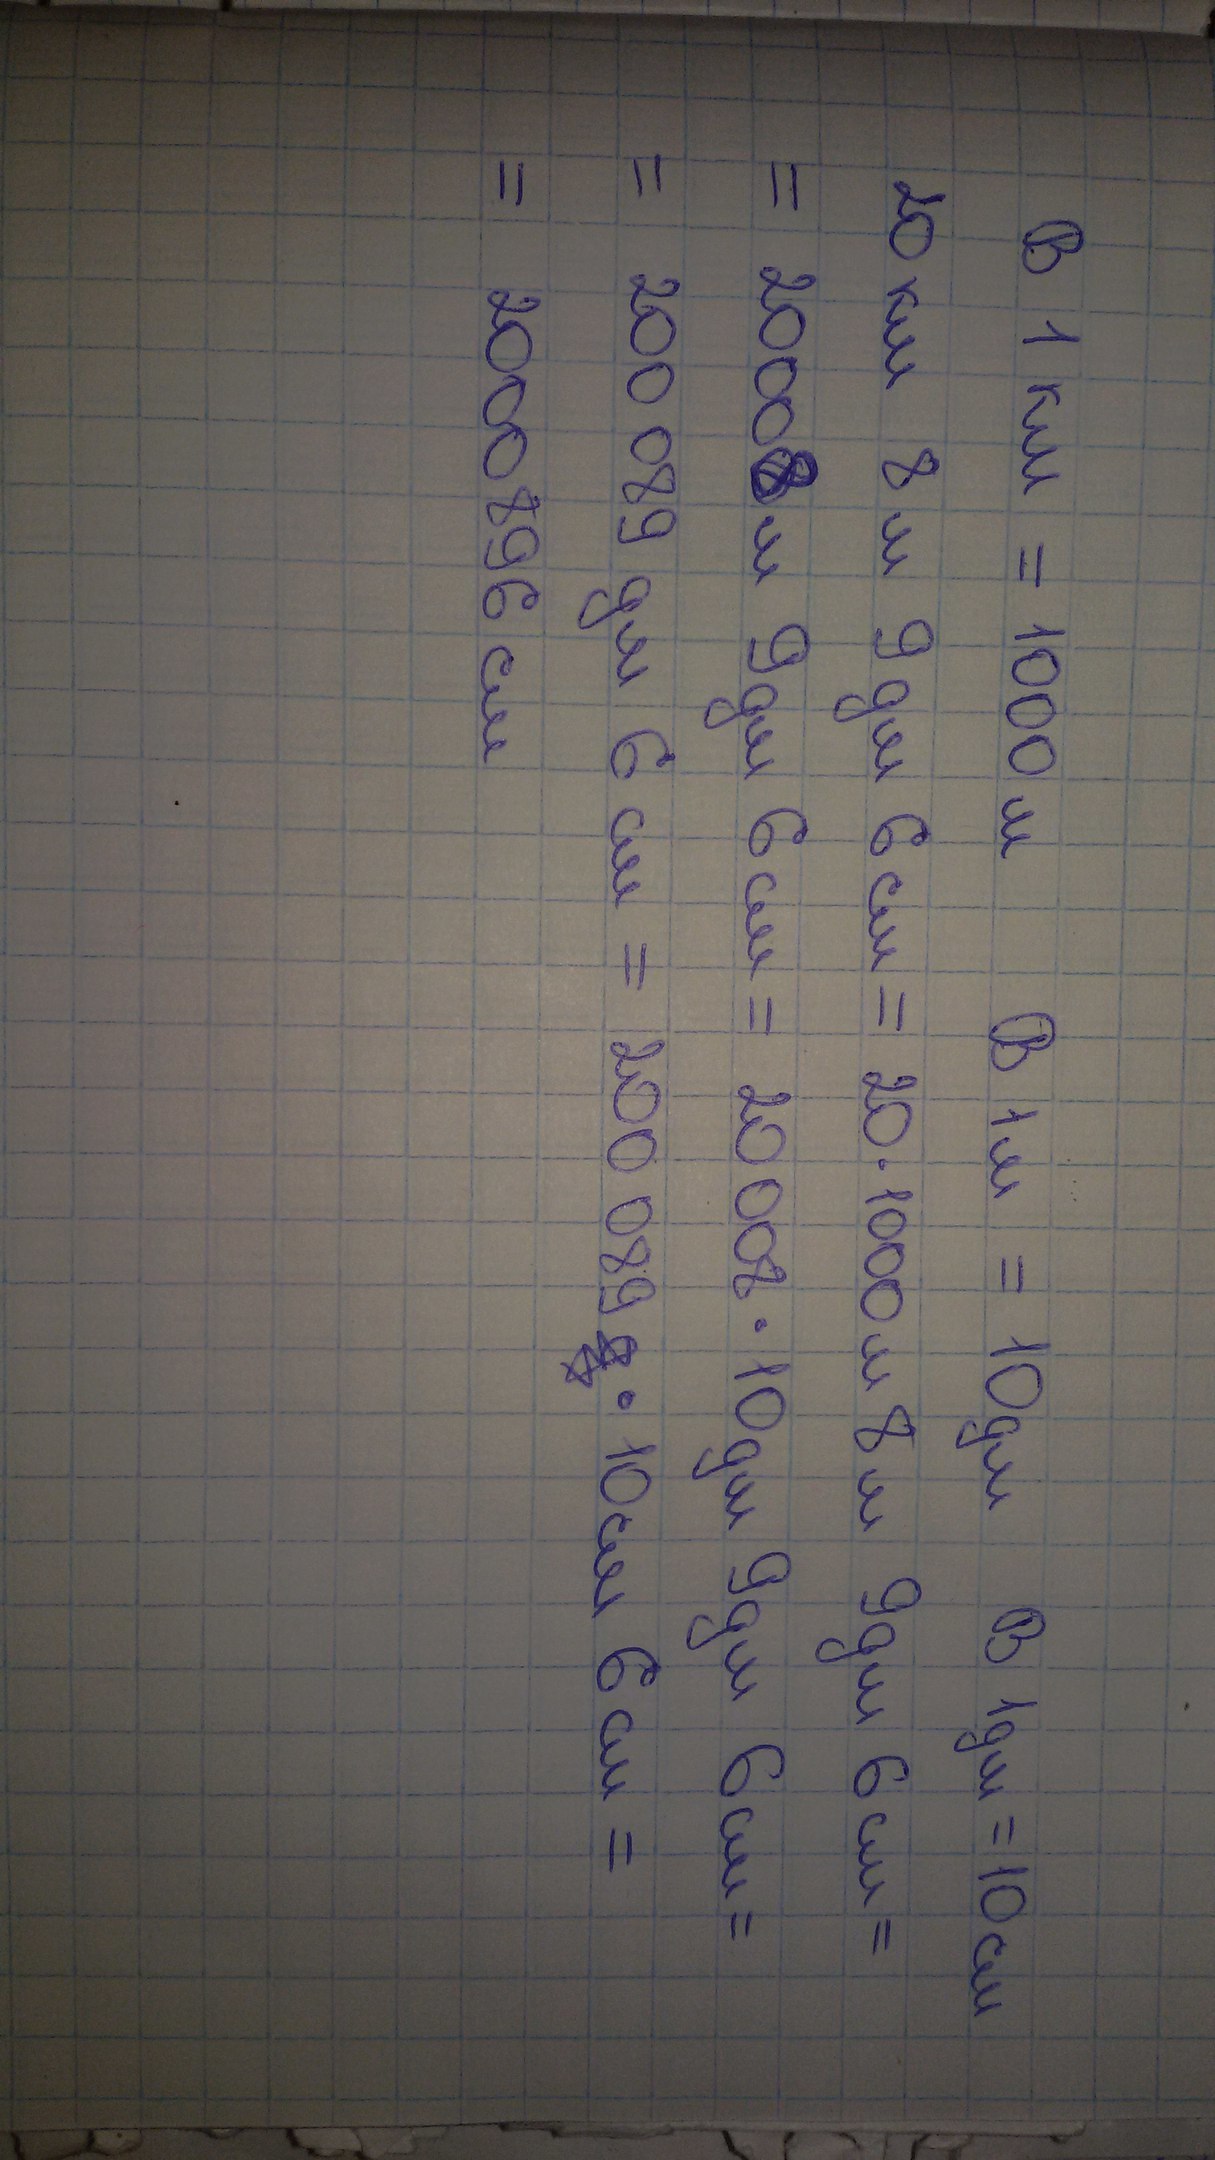 В 1 км = 1000 м В 1м = 10дм В 1дм = 10 см
20 км 8 м 9 дм 6 см = 20·1000 м 8 м 9дм 6 см =
= 20008 м 9дм 6 см = 20 008·10 дм 9дм 6 см =
= 200 089 дм 6 см = 200 089·10 см 6 см =
= 2000896 см